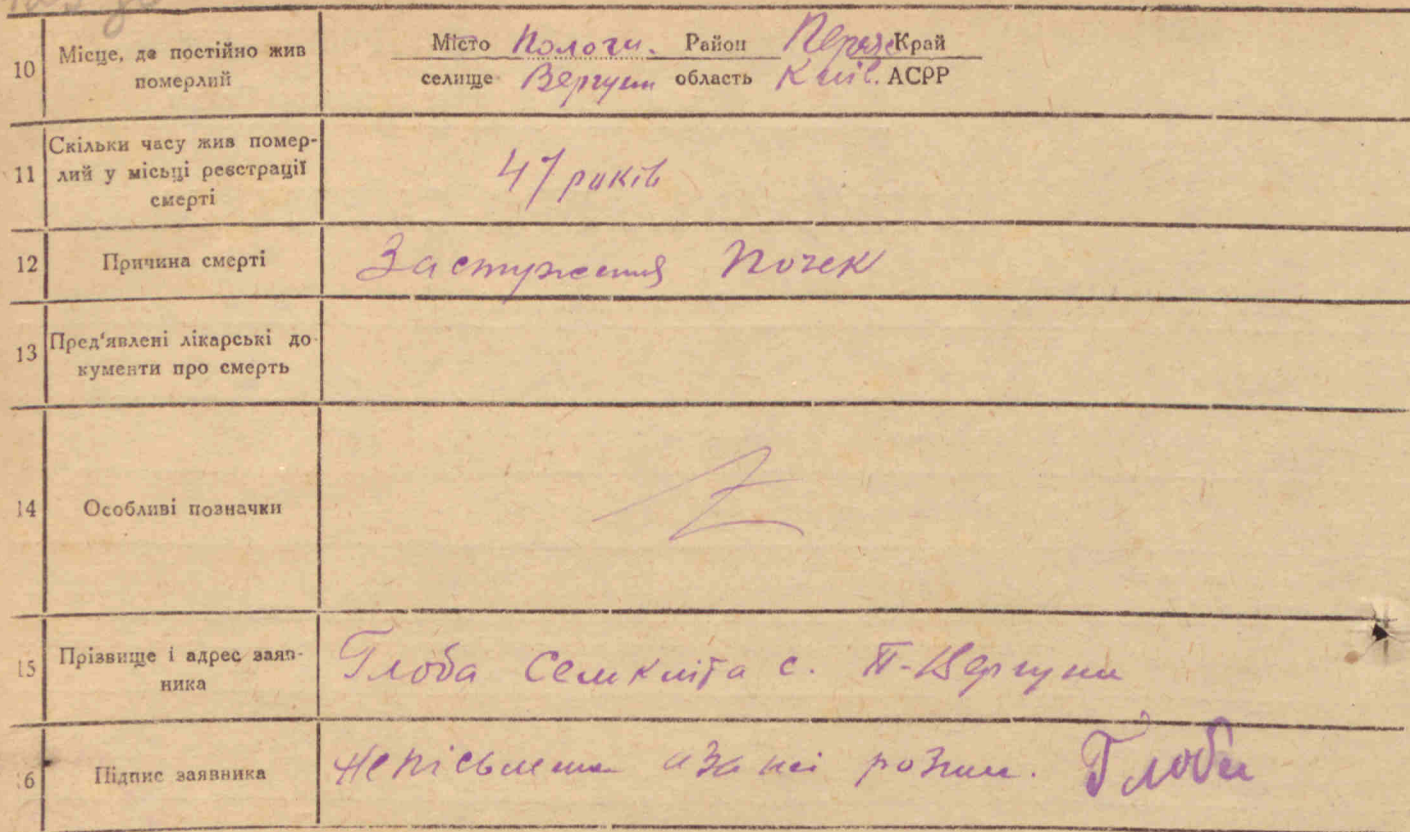 10 Місце, де постійно жив померлий
Місто Пологи. Район Переяс Край
селище Вергуни область Київ. АСРР
11 Скільки часу жив помер-
лий у місьці реєстрації
смерті
47 років
12 Причина смерті Застуження Почек
13 Пред'явлені лікарські до
кументи про смерть
14 Особливі позначки Z
15 Прізвище і адрес заяв-
ника
Глоба с. П-Вергуни
16 Підпис заявника
неписьменна за неї розпис. Глоба